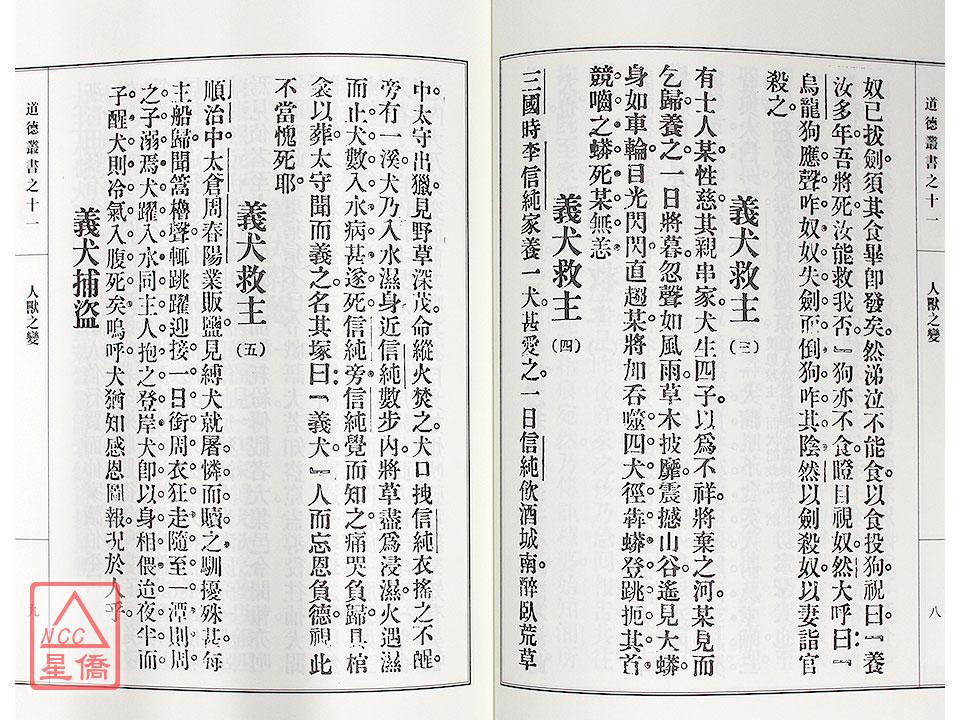 道德叢書之十一
人獸之變
八
奴已拔劍須其食畢卽發矣然涕泣不能食以食投狗祝曰『養
汝多年吾將死汝能救我否』狗亦不食瞪目視奴然大呼曰『
烏龍狗應聲咋奴奴失劍而倒狗咋其陰然以劍殺奴以妻詣官
殺之
義犬救主（三）
有士人某性慈其親串家犬生四子以爲不祥將棄之河某見而
乞歸養之一日將暮忽聲如風雨草木披靡震撼山谷遙見大蟒
身如車輪目光閃閃直趨某將加吞噬四犬徑犇蟒登跳扼其首
競嚙之蟒死某無恙
義犬救主（四）
三國時李信純家養一犬甚愛之一日信純飲酒城南醉臥荒草
中太守出獵見野草深茂命縱火焚之犬口拽信純衣搖之不醒
旁有一溪犬乃入水濕身近信純數步內將草盡爲浸濕火遇濕
而止犬數入水病甚遂死信純旁信純覺而知之痛哭負歸具棺
衾以葬太守聞而義之名其塚曰『義犬』人而忘恩負德視此
不當愧死耶
義犬救主（五）
順治中太倉周春陽業販鹽見縛犬就屠憐而贖之馴擾殊甚每
主船歸聞篙櫓聲輒跳躍迎接一日銜周衣狂走隨至一潭則周
之子溺焉犬躍入水同主人抱之登岸犬卽以身相偎迨夜半而
子醒犬則冷氣入腹死矣嗚呼犬猶知感恩圖報況於人乎
義犬捕盜
道德叢書之十一
人獸之變
九
NCC
星僑